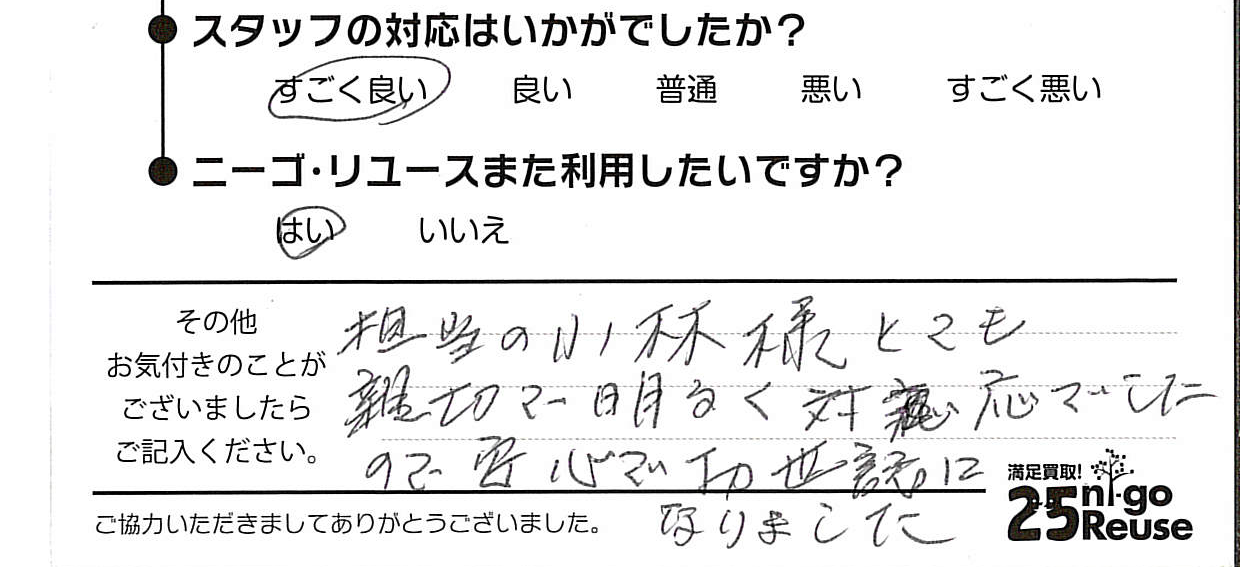 スタッフの対応はいかがでしたか？
すごく良い 良い 普通 悪い すごく悪い
ニーゴ・リユースまた利用したいですか？
はい いいえ
その他
お気付きのことが
ございましたら
ご記入ください。
担当の小林様とても
親切で明るく対応でした
ので安心で 世話に
なりました
ご協力いただきましてありがとうございました。
満足買取！
25 ni-go
Reuse